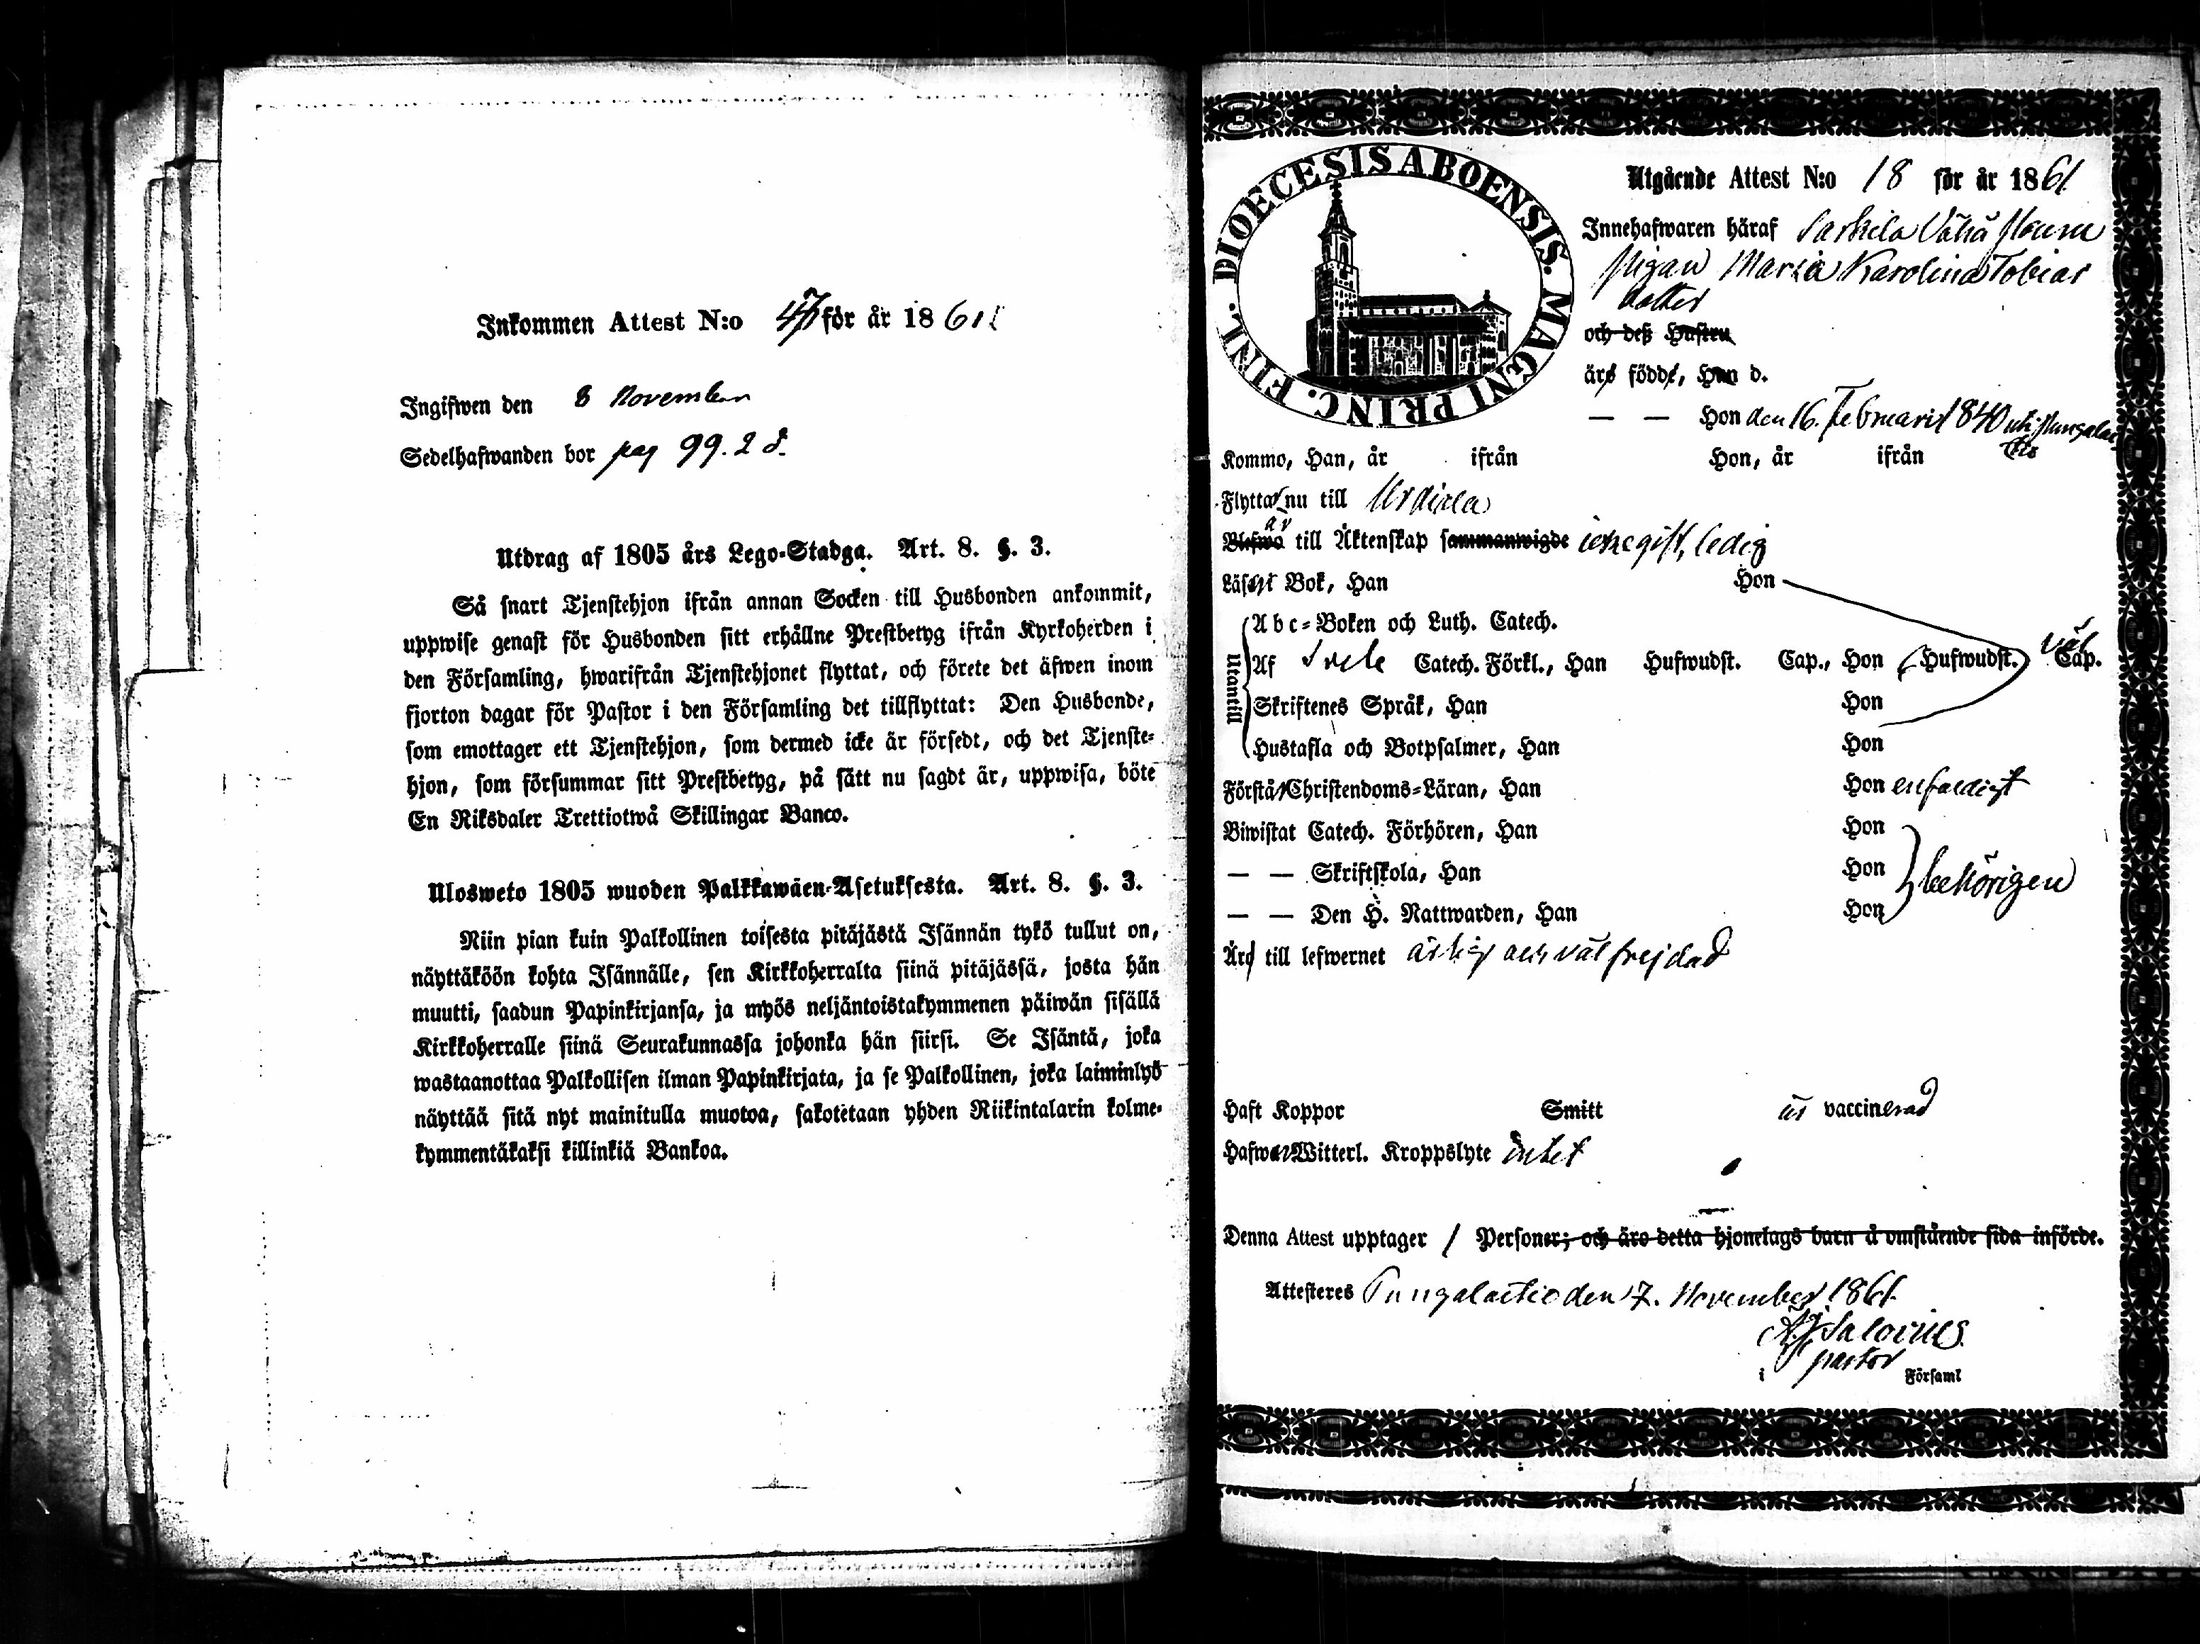 Inkommen Attest N:o 47 för år 1861
Ingifwen den 8 November
Sedelhafwanden bor pag 99. 2 d.
Utdrag af 1805 års Lego-Stadga. Art. 8. §. 3.
Så snart Tjenstehjon ifrån annan Socken till Husbonden ankommit,
uppwise genast för Husbonden sitt erhållne Prestbetyg ifrån Kyrkoherden i
den Församling, hwarifrån Tjenstehjonet flyttat, och förete det äfwen inom
fjorton dagar för Pastor i den Församling det tillflyttat: Den Husbonde,
som emottager ett Tjenstehjon, som dermed icke är försedt, och det Tjenste-
hjon, som försummar sitt Prestbetyg, på sätt nu sagdt är, uppwisa, böte
En Riksdaler Trettiotwå Skillingar Banco.
Ulosweto 1805 wuoden Palkkawäen-Asetuksesta. Art. 8. §. 3.
Niin pian kuin Palkollinen toisesta pitäjästä Isännän tykö tullut on,
näyttäköön kohta Isännälle, sen Kirkkoherralta siinä pitäjässä, josta hän
muutti, saadun Papinkirjansa, ja myös neljäntoistakymmenen päiwän sisällä
Kirkkoherralle siinä Seurakunnassa johonka hän siirsi. Se Isäntä, joka
wastaanottaa Palkollisen ilman Papinkirjata, ja se Palkollinen, joka laiminlyö
näyttää sitä nyt mainitulla muotoa, sakotetaan yhden Riikintalarin kolme-
kymmentäkaksi killinkiä Bankoa.
DIOECESIS ABOENSIS. MAGNI PRINC. FINL.
Utgående Attest N:o 18 för år 1861
Innehafwaren häraf Sarkila Vähä
pigan Maria Karolina Tobias
dotter
och deß Hustru
äro född, Han d.
— — Hon den 16. Februari 1840 uti Pungalai
tio
Kommo, Han, år ifrån Hon, år ifrån
Flyttar nu till Urdiala
är
Blefwo till Äktenskap sammanwigde icke gift, ledig
Läser i Bok, Han Hon
Utantill
Abc-Boken och Luth. Catech.
Af Catech. Förkl., Han Hufwudst. Cap., Hon Hufwudst. Cap.
väl
Skriftenes Språk, Han Hon
Hustafla och Botpsalmer, Han Hon
Förstår Christendoms-Läran, Han Hon enfaldigt
Biwistat Catech. Förhören, Han Hon
— — Skriftskola, Han Hon behörigen
— — Den H. Nattwarden, Han Hon
Är till lefwernet ärlig och väl frejdad
Haft Koppor Smitt är vaccinerad
Hafwer Witterl. Kroppslyte intet
Denna Attest upptager 1 Personer; och äro detta hjonelags barn å omstående sida införde.
Attesteres Pungalaitio den 7. November 1861.
Salovius
pastor
i Församl